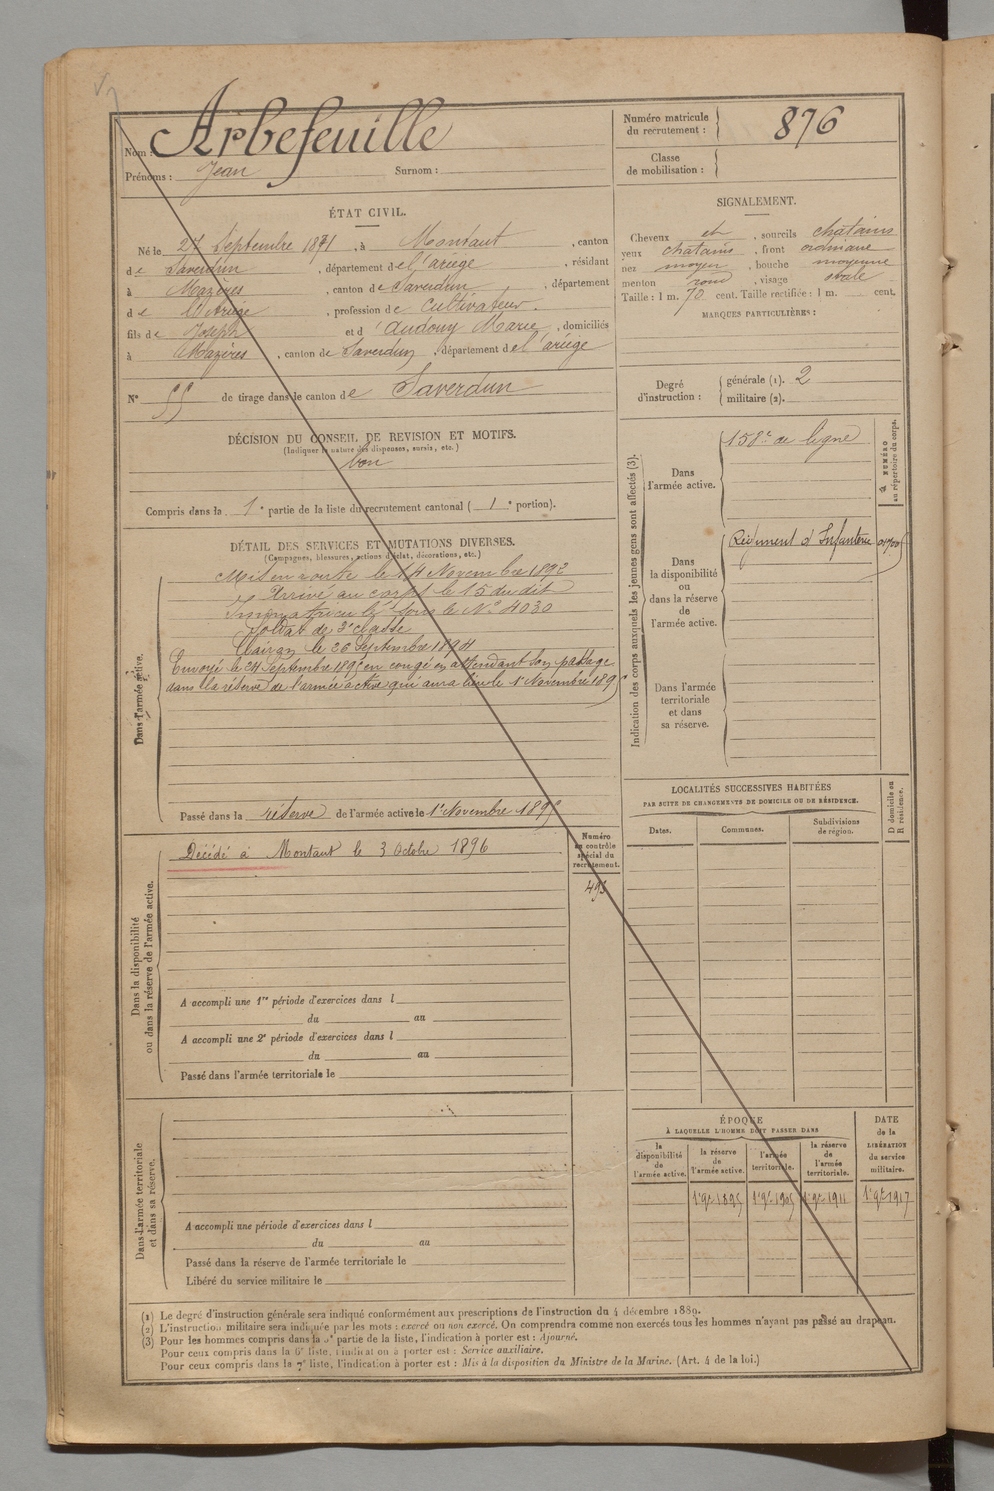 Nom : Arbefeuille
Prénoms : Jean Surnom :
Numéro matricule du recrutement : 876
Classe de mobilisation :
ÉTAT CIVIL.
Né le 27 Septembre 1871, à Montaut, canton
de Saverdun, département de l'ariège, résidant
à Mazères, canton de Saverdun, département
de l'Ariège, profession de Cultivateur
fils de Joseph et d'Audouy Marie, domiciliés
à Mazères, canton de Saverdun, département de l'ariège
N° 55 de tirage dans le canton de Saverdun
SIGNALEMENT.
Cheveux et, sourcils châtains
yeux châtains, front ordinaire
nez moyen, bouche moyenne
menton rond, visage ovale
Taille : 1 m. 70 cent. Taille rectifiée : 1 m. cent.
MARQUES PARTICULIÈRES :
Degré d'instruction : générale (1). 2
militaire (2).
DÉCISION DU CONSEIL DE REVISION ET MOTIFS.
(Indiquer la nature des dispenses, sursis, etc.)
bon
Compris dans la 1e partie de la liste du recrutement cantonal ( 1e portion).
DÉTAIL DES SERVICES ET MUTATIONS DIVERSES.
(Campagnes, blessures, actions d'éclat, décorations, etc.)
Dans l'armée active.
Mis en route le 14 Novembre 1892
Arrivé au corps le 15 du dit
Immatriculé sous le N° 4030
Soldat de 2e classe
Clairon le 26 Septembre 1894
Envoyé le 24 Septembre 1895 en congé en attendant son passage
dans la réserve de l'armée active qui aura lieu le 1er Novembre 1895
Passé dans la réserve de l'armée active le 1er Novembre 1895
Indication des corps auxquels les jeunes gens sont affectés (3).
NUMÉRO au répertoire du corps.
Dans l'armée active.
158e de ligne
Dans la disponibilité ou dans la réserve de l'armée active.
Régiment d'Infanterie
Dans l'armée territoriale et dans sa réserve.
LOCALITÉS SUCCESSIVES HABITÉES
PAR SUITE DE CHANGEMENTS DE DOMICILE OU DE RÉSIDENCE.
Dates. Communes. Subdivisions de région. D domicile ou R résidence.
Dans la disponibilité ou dans la réserve de l'armée active.
Décédé à Montaut le 3 Octobre 1896
Numéro au contrôle spécial du recrutement.
493
A accompli une 1re période d'exercices dans l
du au
A accompli une 2e période d'exercices dans l
du au
Passé dans l'armée territoriale le
Dans l'armée territoriale et dans sa réserve.
A accompli une période d'exercices dans l
du au
Passé dans la réserve de l'armée territoriale le
Libéré du service militaire le
ÉPOQUE
À LAQUELLE L'HOMME DOIT PASSER DANS
la disponibilité de l'armée active. la réserve de l'armée active. l'armée territoriale. la réserve de l'armée territoriale.
DATE de la LIBÉRATION du service militaire.
1er 9bre 1895 1er 9bre 1905 1er 9bre 1911 1er 9bre 1917
(1) Le degré d'instruction générale sera indiqué conformément aux prescriptions de l'instruction du 4 décembre 1889.
(2) L'instruction militaire sera indiquée par les mots : exercé ou non exercé. On comprendra comme non exercés tous les hommes n'ayant pas passé au drapeau.
(3) Pour les hommes compris dans la 5e partie de la liste, l'indication à porter est : Ajourné.
Pour ceux compris dans la 6e liste, l'indication à porter est : Service auxiliaire.
Pour ceux compris dans la 7e liste, l'indication à porter est : Mis à la disposition du Ministre de la Marine. (Art. 4 de la loi.)